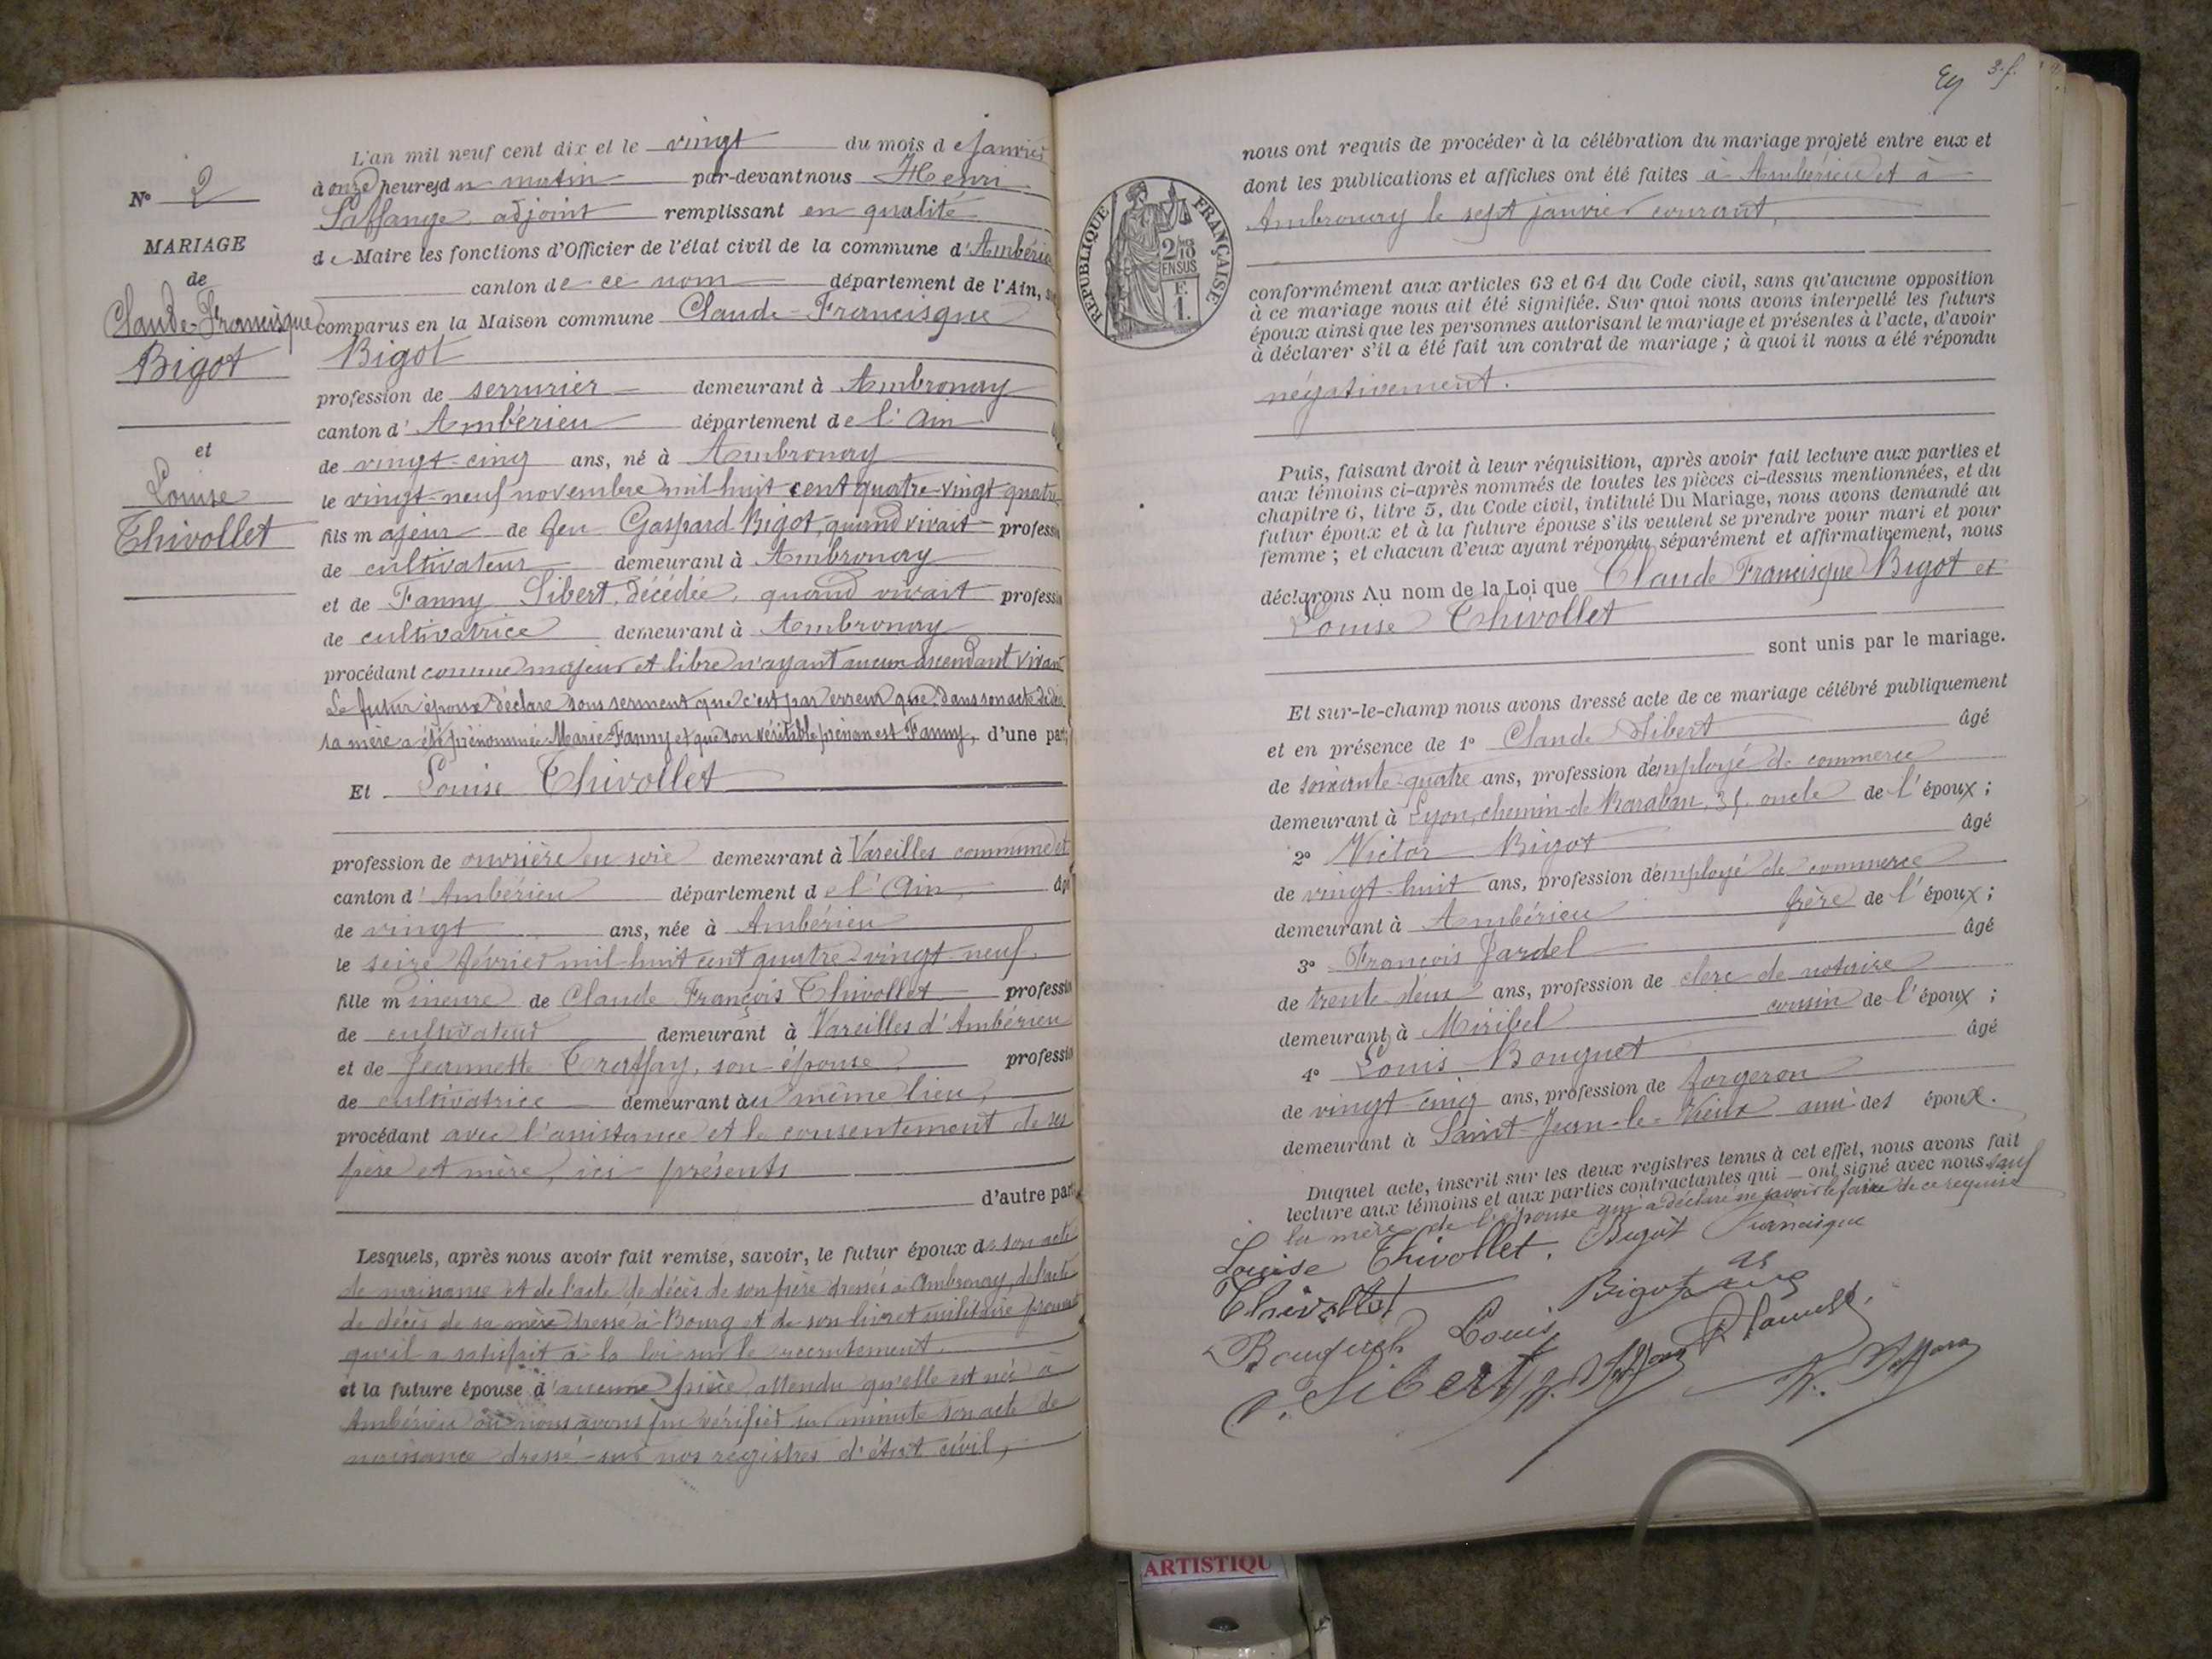 L'an mil neuf cent dix et le vingt du mois de Janvier
à onze heures du matin par-devant nous Henri
Laffange adjoint remplissant en qualité
de Maire les fonctions d'Officier de l'état civil de la commune d'Ambérieu
canton de ce nom département de l'Ain,
comparus en la Maison commune Claude-Francisque
Bigot
profession de serrurier demeurant à Ambronay
canton d'Ambérieu département de l'Ain
de vingt-cinq ans, né à Ambronay
le vingt-neuf novembre mil huit cent quatre-vingt-quatre
fils majeur de feu Gaspard Bigot, quand vivait profession
de cultivateur demeurant à Ambronay
et de Fanny Sibert, décédée, quand vivait profession
de cultivatrice demeurant à Ambronay
procédant comme majeur et libre n'ayant aucun ascendant vivant
Le futur époux déclare sous serment que c'est par erreur que dans son acte de décès
sa mère a été prénommée Marie-Fanny et que son véritable prénom est Fanny, d'une part;
Et Louise Thivollet
profession de ouvrière en soie demeurant à Vareilles commune et
canton d'Ambérieu département de l'Ain, âgé
de vingt ans, née à Ambérieu
le seize février mil huit cent quatre-vingt-neuf,
fille mineure de Claude François Thivollet profession
de cultivateur demeurant à Vareilles d'Ambérieu
et de Jeannette Traffay, son épouse, profession
de cultivatrice demeurant au même lieu,
procédant avec l'assistance et le consentement de ses
père et mère, ici présents
d'autre part
Lesquels, après nous avoir fait remise, savoir, le futur époux de son acte
de naissance et de l'acte de décès de son père dressés à Ambronay, de l'acte
de décès de sa mère dressé à Bourg et de son livret militaire prouvant
qu'il a satisfait à la loi sur le recrutement.
et la future épouse d'aucune pièce, attendu qu'elle est née à
Ambérieu où nous avons pu vérifier sur minute son acte de
naissance dressé sur nos registres d'état civil,
N° 2
MARIAGE
de
Claude-Francisque
Bigot
et
Louise
Thivollet
3 f.
nous ont requis de procéder à la célébration du mariage projeté entre eux et
dont les publications et affiches ont été faites à Ambérieu et à
Ambronay le sept janvier courant,
RÉPUBLIQUE FRANÇAISE
2/10
EN SUS
F.
1.
conformément aux articles 63 et 64 du Code civil, sans qu'aucune opposition
à ce mariage nous ait été signifiée. Sur quoi nous avons interpellé les futurs
époux ainsi que les personnes autorisant le mariage et présentes à l'acte, d'avoir
à déclarer s'il a été fait un contrat de mariage ; à quoi il nous a été répondu
négativement.
Puis, faisant droit à leur réquisition, après avoir fait lecture aux parties et
aux témoins ci-après nommés de toutes les pièces ci-dessus mentionnées, et du
chapitre 6, titre 5, du Code civil, intitulé Du Mariage, nous avons demandé au
futur époux et à la future épouse s'ils veulent se prendre pour mari et pour
femme ; et chacun d'eux ayant répondu séparément et affirmativement, nous
déclarons Au nom de la Loi que Claude Francisque Bigot et
Louise Thivollet
sont unis par le mariage.
Et sur-le-champ nous avons dressé acte de ce mariage célébré publiquement
et en présence de 1° Claude Sibert âgé
de soixante-quatre ans, profession d'employé de commerce
demeurant à Lyon, chemin de Baraban, 35, oncle de l'époux ;
2° Victor Bigot âgé
de vingt-huit ans, profession d'employé de commerce
demeurant à Ambérieu frère de l'époux ;
3° François Jardel âgé
de trente-deux ans, profession de clerc de notaire
demeurant à Miribel cousin de l'époux ;
4° Louis Bouquet âgé
de vingt-cinq ans, profession de forgeron
demeurant à Saint-Jean-le-Vieux ami des époux.
Duquel acte, inscrit sur les deux registres tenus à cet effet, nous avons fait
lecture aux témoins et aux parties contractantes qui ont signé avec nous sauf
la mère de l'épouse qui a déclaré ne savoir le faire de ce requise
Louise Thivollet. Bigot Francisque
Thivollet Bigot
Bouquet Louis
C. Sibert
ARTISTIQU